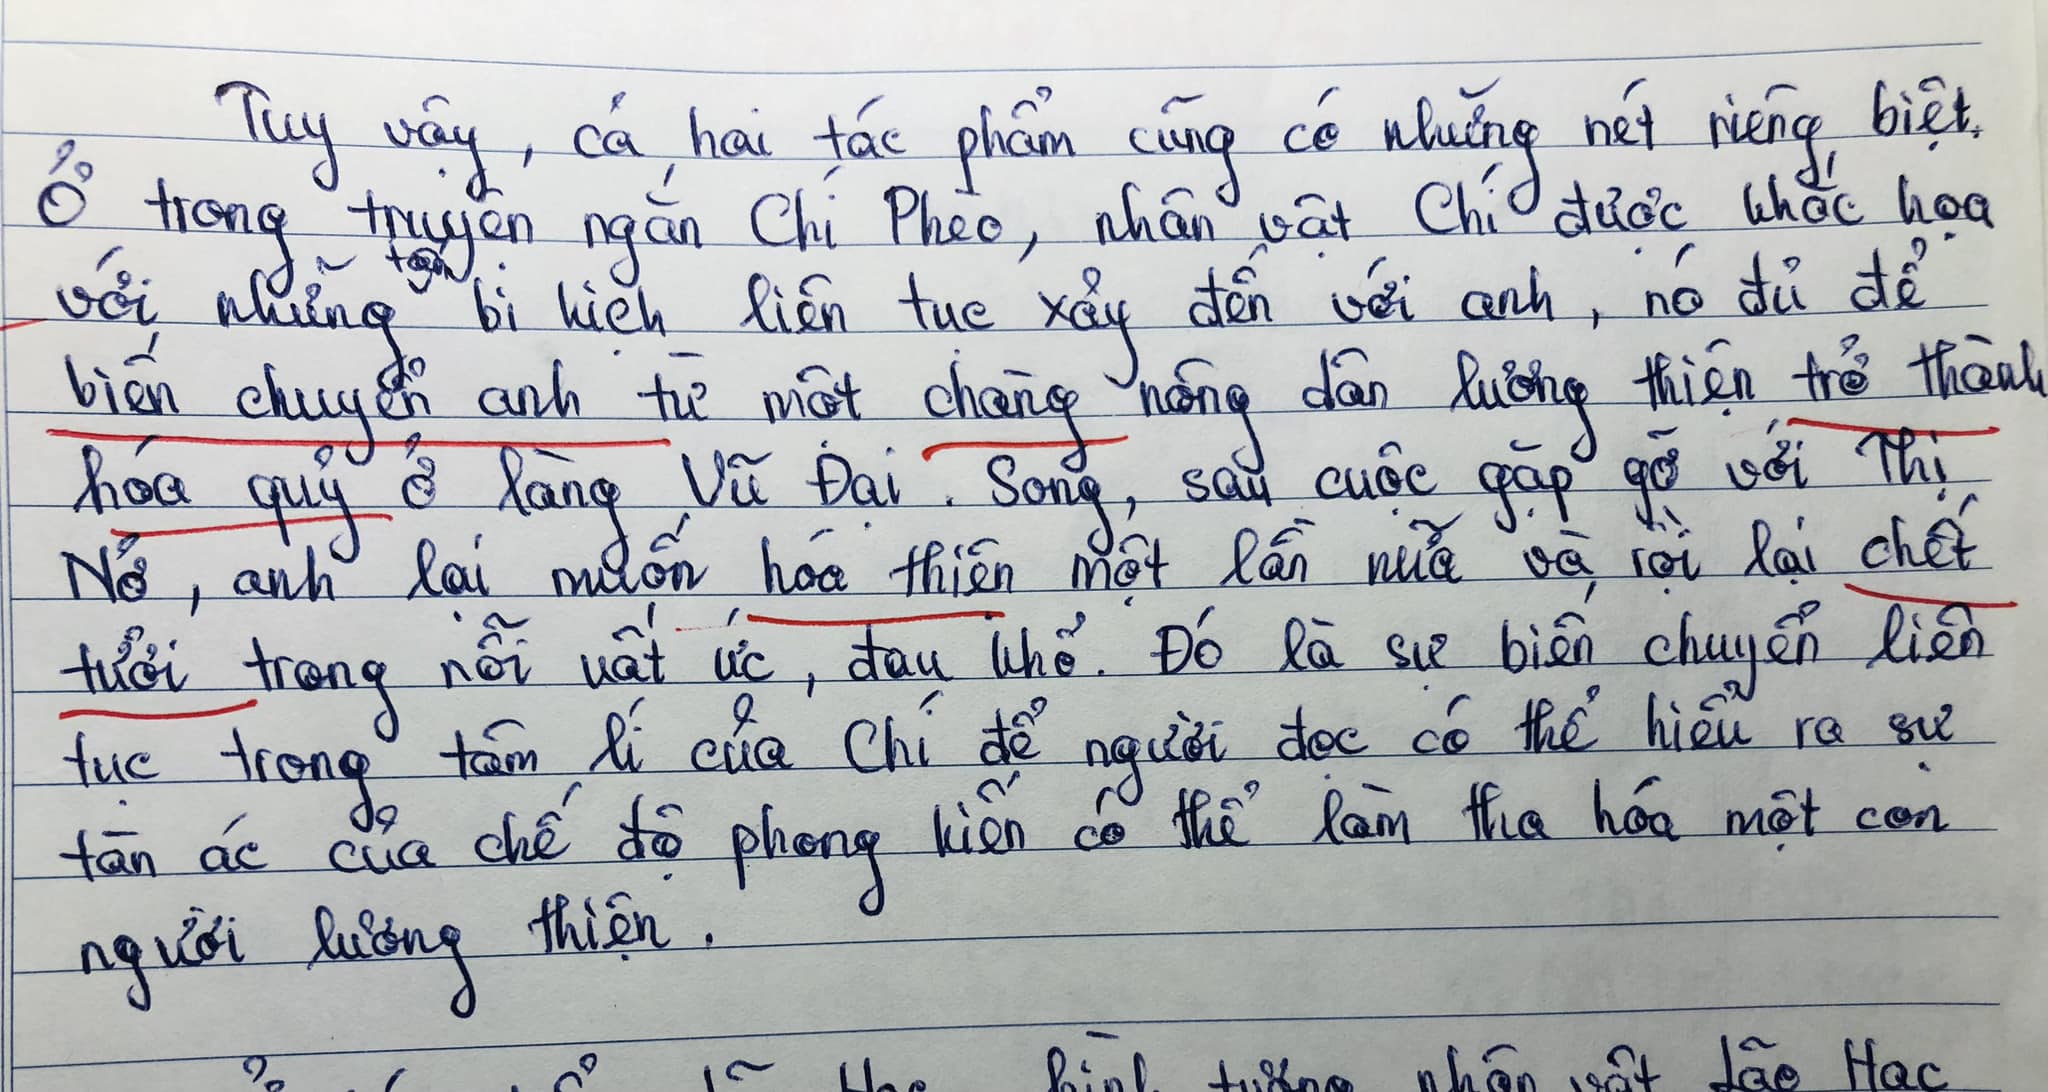 Tuy vậy, cả hai tác phẩm cũng có những nét riêng biệt.
Ở trong truyện ngắn Chí Phèo, nhân vật Chí được khắc họa
với những toàn bi kịch liên tục xảy đến với anh, nó đủ để
biến chuyển anh từ một chàng nông dân lương thiện trở thành
hóa quỷ ở làng Vũ Đại. Song, sau cuộc gặp gỡ với Thị
Nở, anh lại muốn hóa thiện một lần nữa và rồi lại chết
tưởi trong nỗi uất ức, đau khổ. Đó là sự biến chuyển liên
tục trong tâm lí của Chí để người đọc có thể hiểu ra sự
tàn ác của chế độ phong kiến có thể làm tha hóa một con
người lương thiện.
hình tượng nhân vật lão Hạc